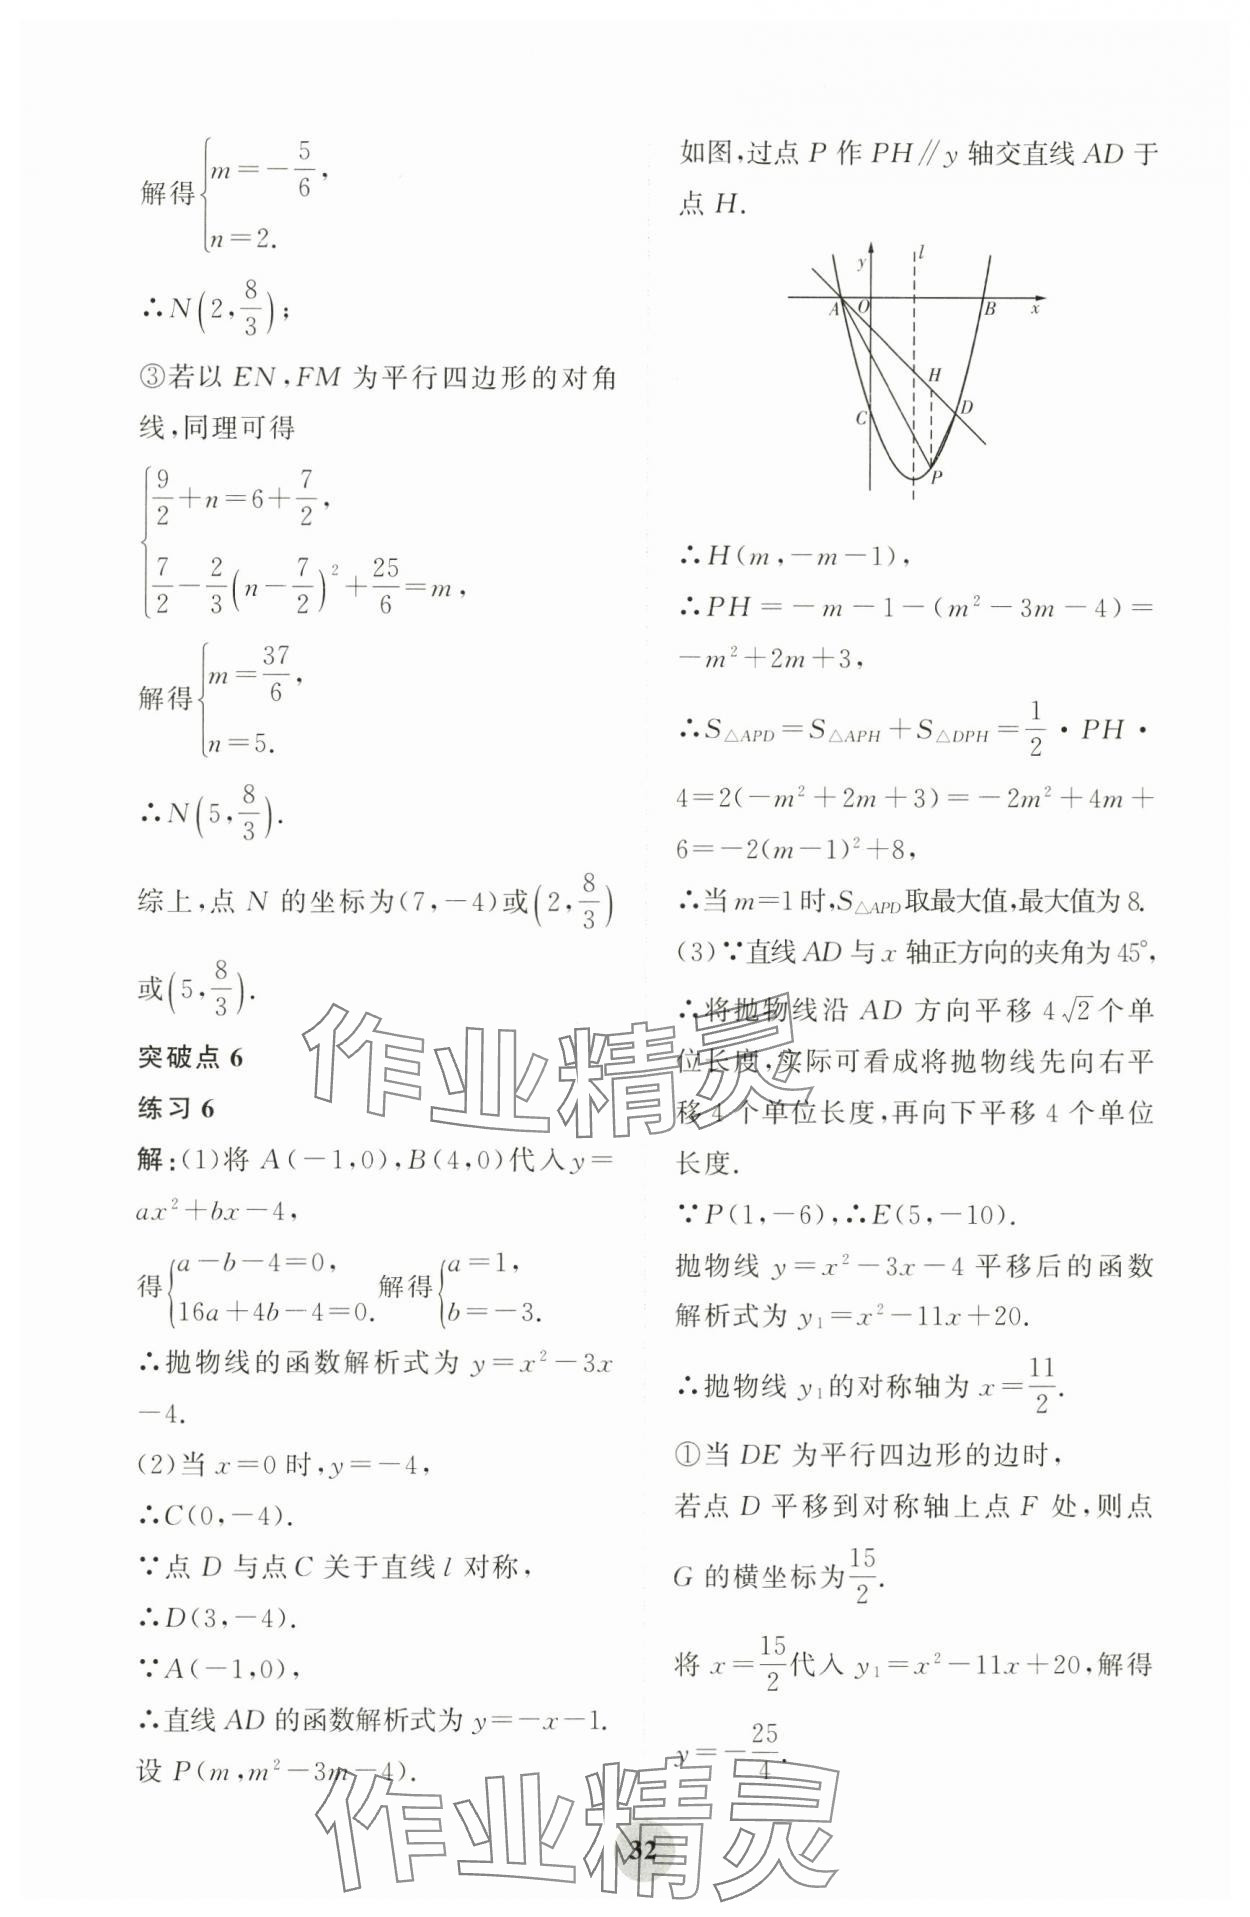 解得{m=-5/6,
n=2.
∴N(2,8/3);
③若以 EN,FM 为平行四边形的对角
线,同理可得
{9/2+n=6+7/2,
7/2-2/3(n-7/2)²+25/6=m,
解得{m=37/6,
n=5.
∴N(5,8/3).
综上,点 N 的坐标为(7,-4)或(2,8/3)
或(5,8/3).
突破点 6
练习 6
解:(1)将 A(-1,0),B(4,0)代入 y=
ax²+bx-4,
得{a-b-4=0, 16a+4b-4=0. 解得{a=1, b=-3.
∴抛物线的函数解析式为 y=x²-3x
-4.
(2)当 x=0 时,y=-4,
∴C(0,-4).
∵点 D 与点 C 关于直线 l 对称,
∴D(3,-4).
∵A(-1,0),
∴直线 AD 的函数解析式为 y=-x-1.
设 P(m,m²-3m-4).
如图,过点 P 作 PH∥y 轴交直线 AD 于
点 H.
y l
A O B x
H
C D
P
∴H(m,-m-1),
∴PH=-m-1-(m²-3m-4)=
-m²+2m+3,
∴S△APD=S△APH+S△DPH=1/2·PH·
4=2(-m²+2m+3)=-2m²+4m+
6=-2(m-1)²+8,
∴当 m=1 时,S△APD取最大值,最大值为 8.
(3)∵直线 AD 与 x 轴正方向的夹角为 45°,
∴将抛物线沿 AD 方向平移 4√2 个单
位长度,实际可看成将抛物线先向右平
移 4 个单位长度,再向下平移 4 个单位
长度.
∵P(1,-6),∴E(5,-10).
抛物线 y=x²-3x-4 平移后的函数
解析式为 y₁=x²-11x+20.
∴抛物线 y₁的对称轴为 x=11/2.
①当 DE 为平行四边形的边时,
若点 D 平移到对称轴上点 F 处,则点
G 的横坐标为15/2.
将 x=15/2代入 y₁=x²-11x+20,解得
y=-25/4.
作业精灵
作业精灵
32